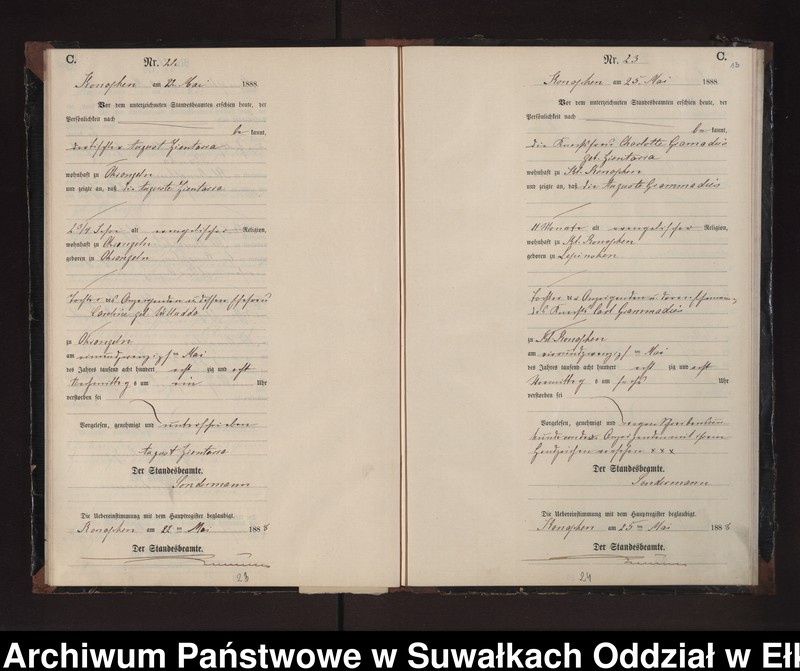 C.
Nr. 22.
Konopken am 22. Mai 1888.
Vor dem unterzeichneten Standesbeamten erschien heute, der
Persönlichkeit nach
be kannt,
August Zientarra
wohnhaft zu
und zeigte an, daß die Auguste Zientarra
2 3/4 Jahre alt evangelischer Religion,
wohnhaft zu
geboren zu
Tochter des Anzeigenden u dessen Ehefrau
geb.
zu
am einundzwanzigsten Mai
des Jahres tausend acht hundert acht zig und acht
Nachmittags um ein Uhr
verstorben sei
Vorgelesen, genehmigt und unterschrieben
August Zientarra
Der Standesbeamte.
Sondermann
Die Uebereinstimmung mit dem Hauptregister beglaubigt.
Konopken am 22 ten Mai 1888
Der Standesbeamte.
23
C.
Nr. 23
13
Konopken am 25. Mai 1888.
Vor dem unterzeichneten Standesbeamten erschien heute, der
Persönlichkeit nach
be kannt,
die Knechtsfrau Charlotte
geb. Zientarra
wohnhaft zu Kl. Konopken
und zeigte an, daß die Auguste
11 Monate alt evangelischer Religion,
wohnhaft zu Kl. Konopken
geboren zu
Tochter der Anzeigenden u deren Eheman-
des Knechts Carl
zu Kl. Konopken
am einundzwanzigsten Mai
des Jahres tausend acht hundert acht zig und acht
Vormittags um sechs Uhr
verstorben sei
Vorgelesen, genehmigt und wegen Schreibens un-
kunde von der Anzeigenden mit ihrem
Handzeichen versehen x x x
Der Standesbeamte.
Sondermann
Die Uebereinstimmung mit dem Hauptregister beglaubigt.
Konopken am 25 ten Mai 1888
Der Standesbeamte.
24
Archiwum Państwowe w Suwałkach Oddział w Eł